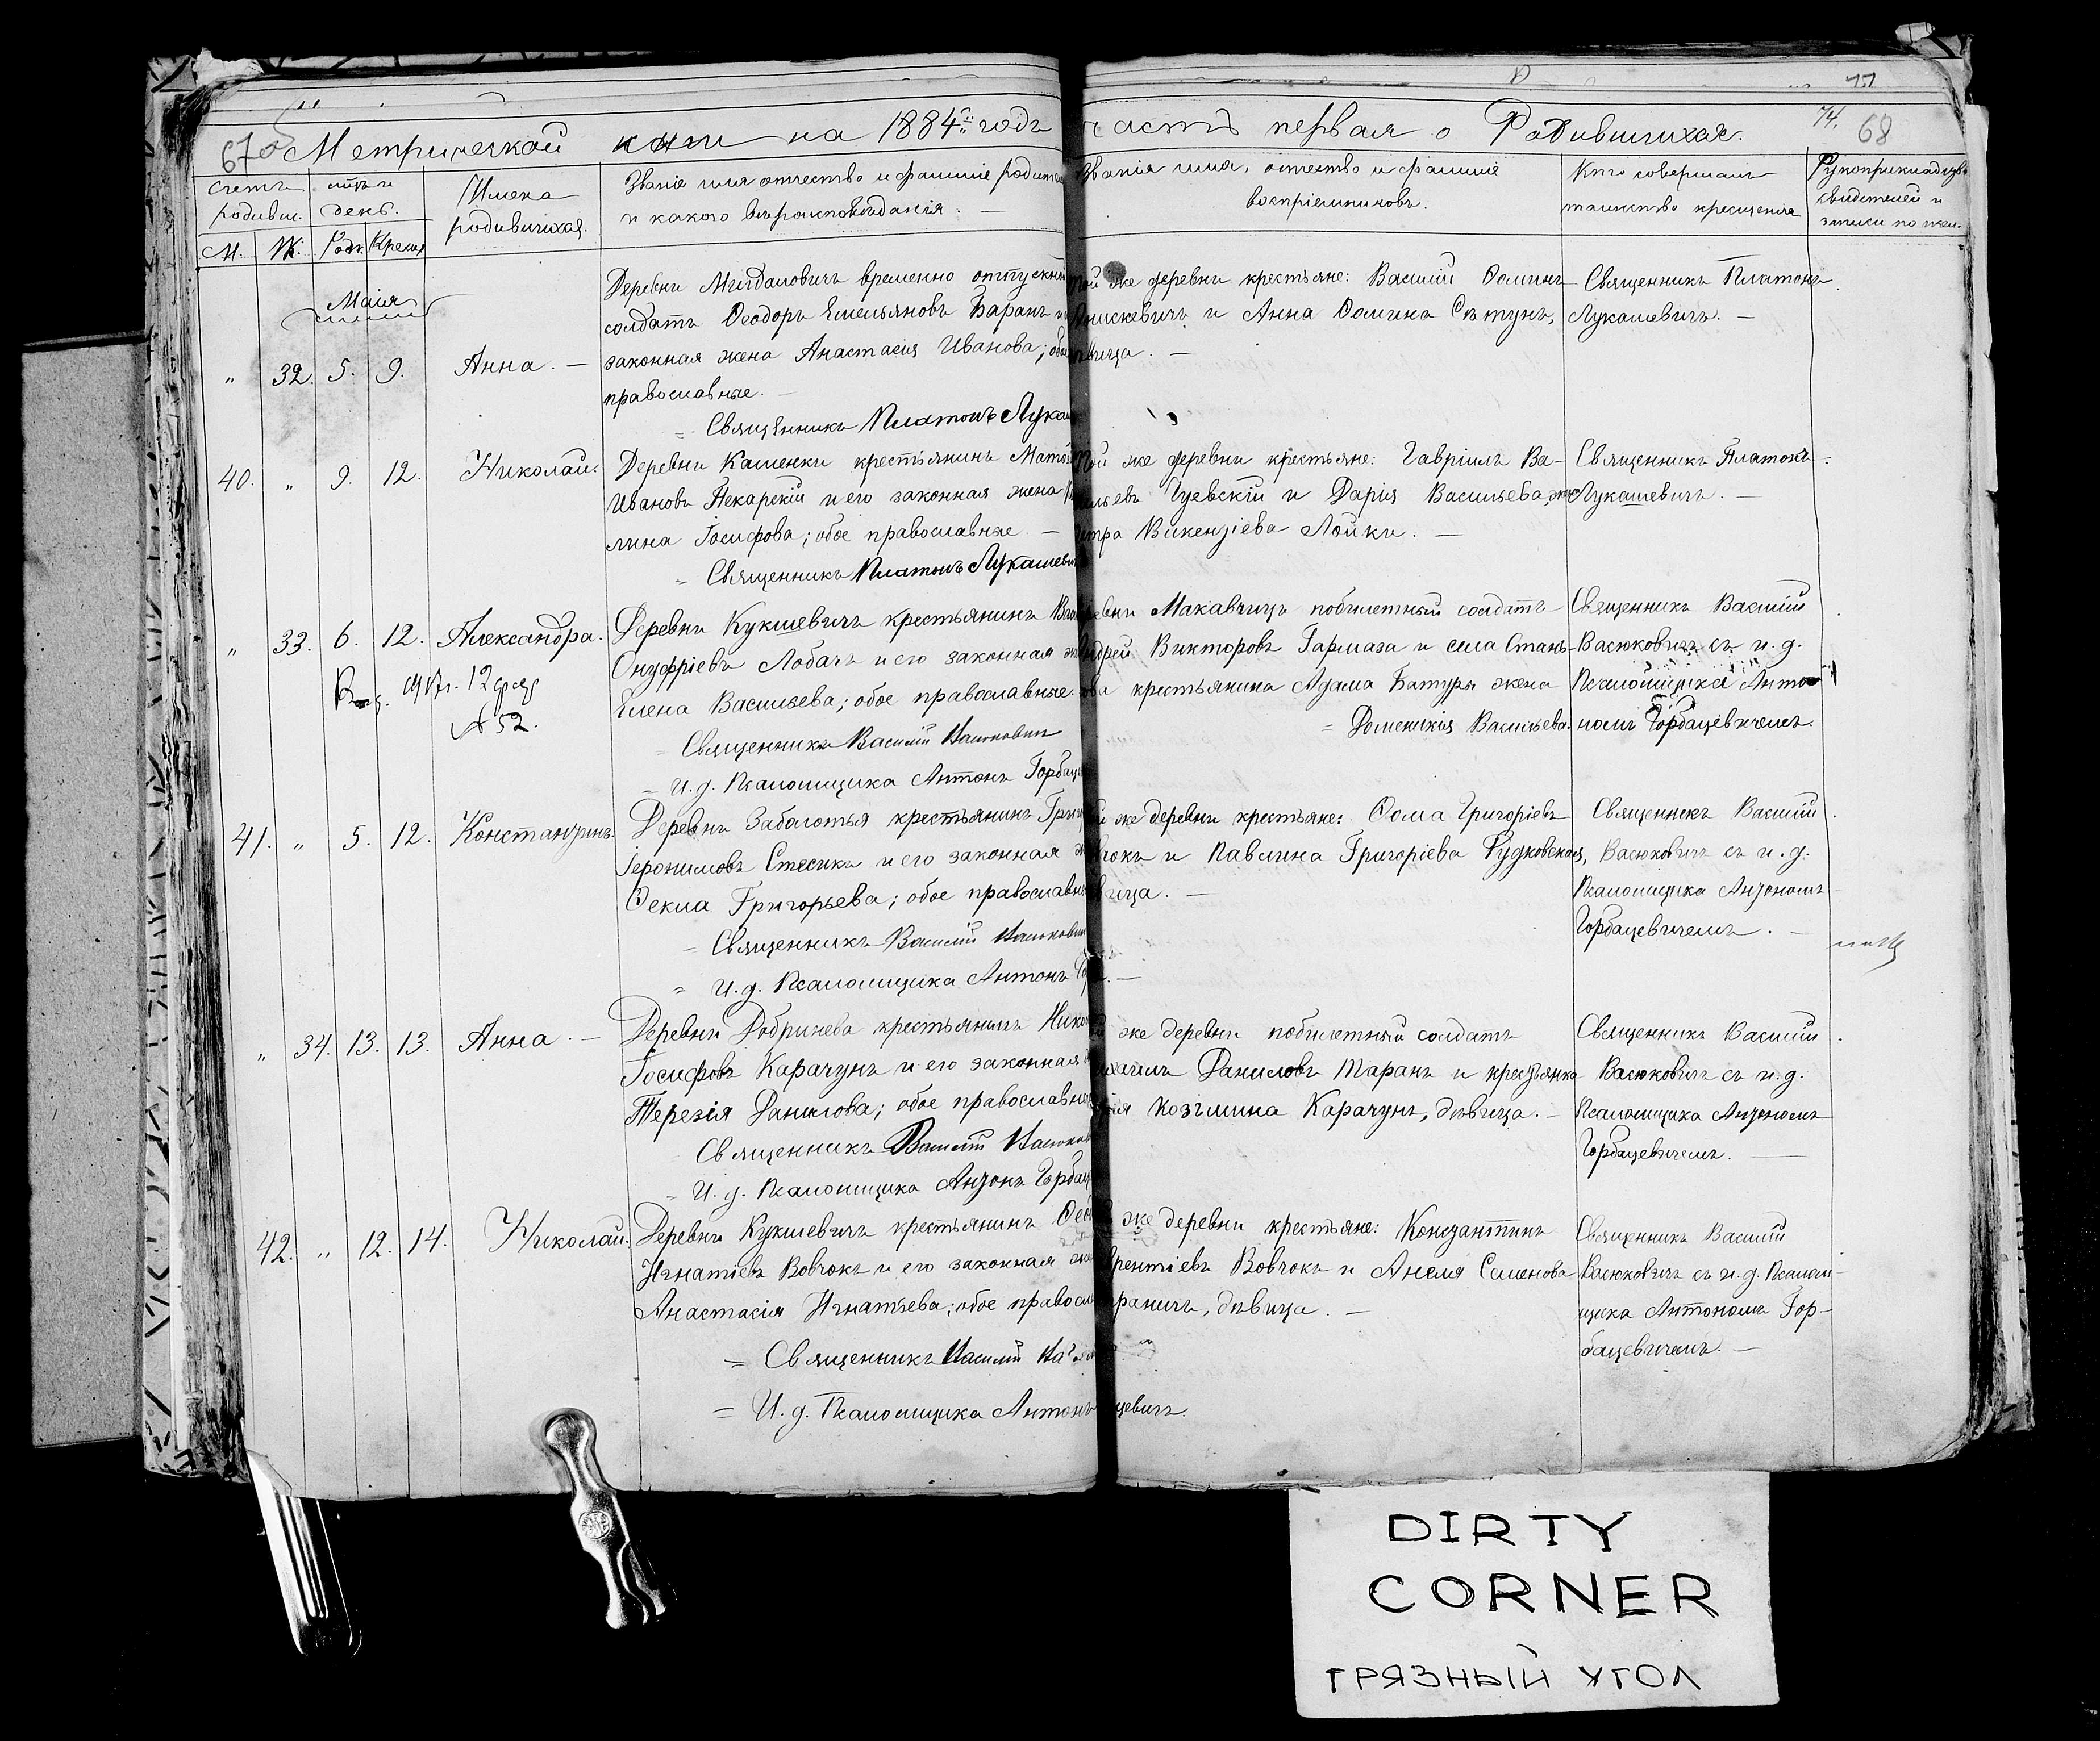 77
67об Метрической кни на 1884й годъ часть первая о Родившихся. 74. 68
Счетъ родивш. М. Ж.
мѣсяцъ и день. Рожд. Крещ.
Имена родившихся.
Званіе имя отчество и фамиліе родител
и какого вѣроисповѣданія. —
Званія имя, отчество и фамиліе
воспріемниковъ.
Кто совершалъ
таинство крещенія
Рукоприкладство
свидетелей и
записи по жел.
Маія
" 32. 5. 9. Анна. —
Деревни Мигдаловичъ временно отпускн
солдатъ Ѳеодоръ Емельяновъ Баранъ и
законная жена Анастасія Иванова; обо
православные. —
Священникъ Платонъ Лука
той же деревни крестьяне: Василій Ѳоминъ
Анискевичъ и Анна Ѳомина Сѣтунъ,
дѣвица. —
Священникъ Платонъ
Лукашевичъ. —
40. " 9. 12. Николай.
Деревни Кашенки крестьянинъ Матѳ
Ивановъ Пекарскій и его законная жена
лина Іосифова; обое православные —
Священникъ Платонъ Лукашеви
той же деревни крестьяне: Гавріилъ Ва-
сильевъ Гуевскій и Дарія Васильева, же
Петра Викензіева Лойки. —
Священникъ Платонъ
Лукашевичъ. —
" 33. 6. 12. Александра.
12
№ 52.
Деревни Кукшевичъ крестьянинъ
Онуфріевъ Лобачъ и его законная
Елена Васильева; обое православные.
Священникъ Василій Васюковичъ
И. д. Псаломщика Антонъ Горбац
ревни Макавчицъ побилетный солдатъ
Андрей Викторовъ Гармаза и села Стань-
ва крестьянина Адама Батуры жена
= Доменикія Васильева.
Священникъ Василій
Васюковичъ съ и. д.
Псаломщика Анто-
номъ Горбацевичемъ.
41. " 5. 12. Константинъ.
Деревни Заболотья крестьянинъ Григ
Іеронимовъ Стесикъ и его законная
Ѳекла Григорьева; обое православн
Священникъ Василій Васюкови
= И. д. Псаломщика Антонъ Го
же деревни крестьяне: Ѳома Григоріевъ
и Павлина Григоріева Рудковская,
вица. —
Священникъ Василій
Васюковичъ съ и. д.
Псаломщика Антономъ
Горбацевичемъ. —
" 34. 13. 13. Анна. —
Деревни Добринева крестьянинъ Нико
Іосифовъ Карачунъ и его законная
Терезія Данилова; обое православн
Священникъ Василій Васюков
= И. д. Псаломщика Антонъ Горбац
же деревни побилетный солдатъ
хаилъ Даниловъ Таранъ и крестьянка
Козьмина Карачунъ, дѣвица. —
Священникъ Василій
Васюковичъ съ и. д.
Псаломщика Антономъ
Горбацевичемъ. —
42. " 12. 14. Николай.
Деревни Кукшевичъ крестьянинъ Ѳео
Игнатіевъ Вовчокъ и его законная же
Анастасія Игнатьева; обое правосл
= Священникъ Василій Ва
= И. д. Псаломщика Антонъ
же деревни крестьяне: Константинъ
врентіевъ Вовчокъ и Анеля Семенова
раничъ, дѣвица. —
цевичъ.
Священникъ Василій
Васюковичъ съ и. д. Псалом-
щика Антономъ Гор-
бацевичемъ. —
DIRTY
CORNER
ГРЯЗНЫЙ УГОЛ